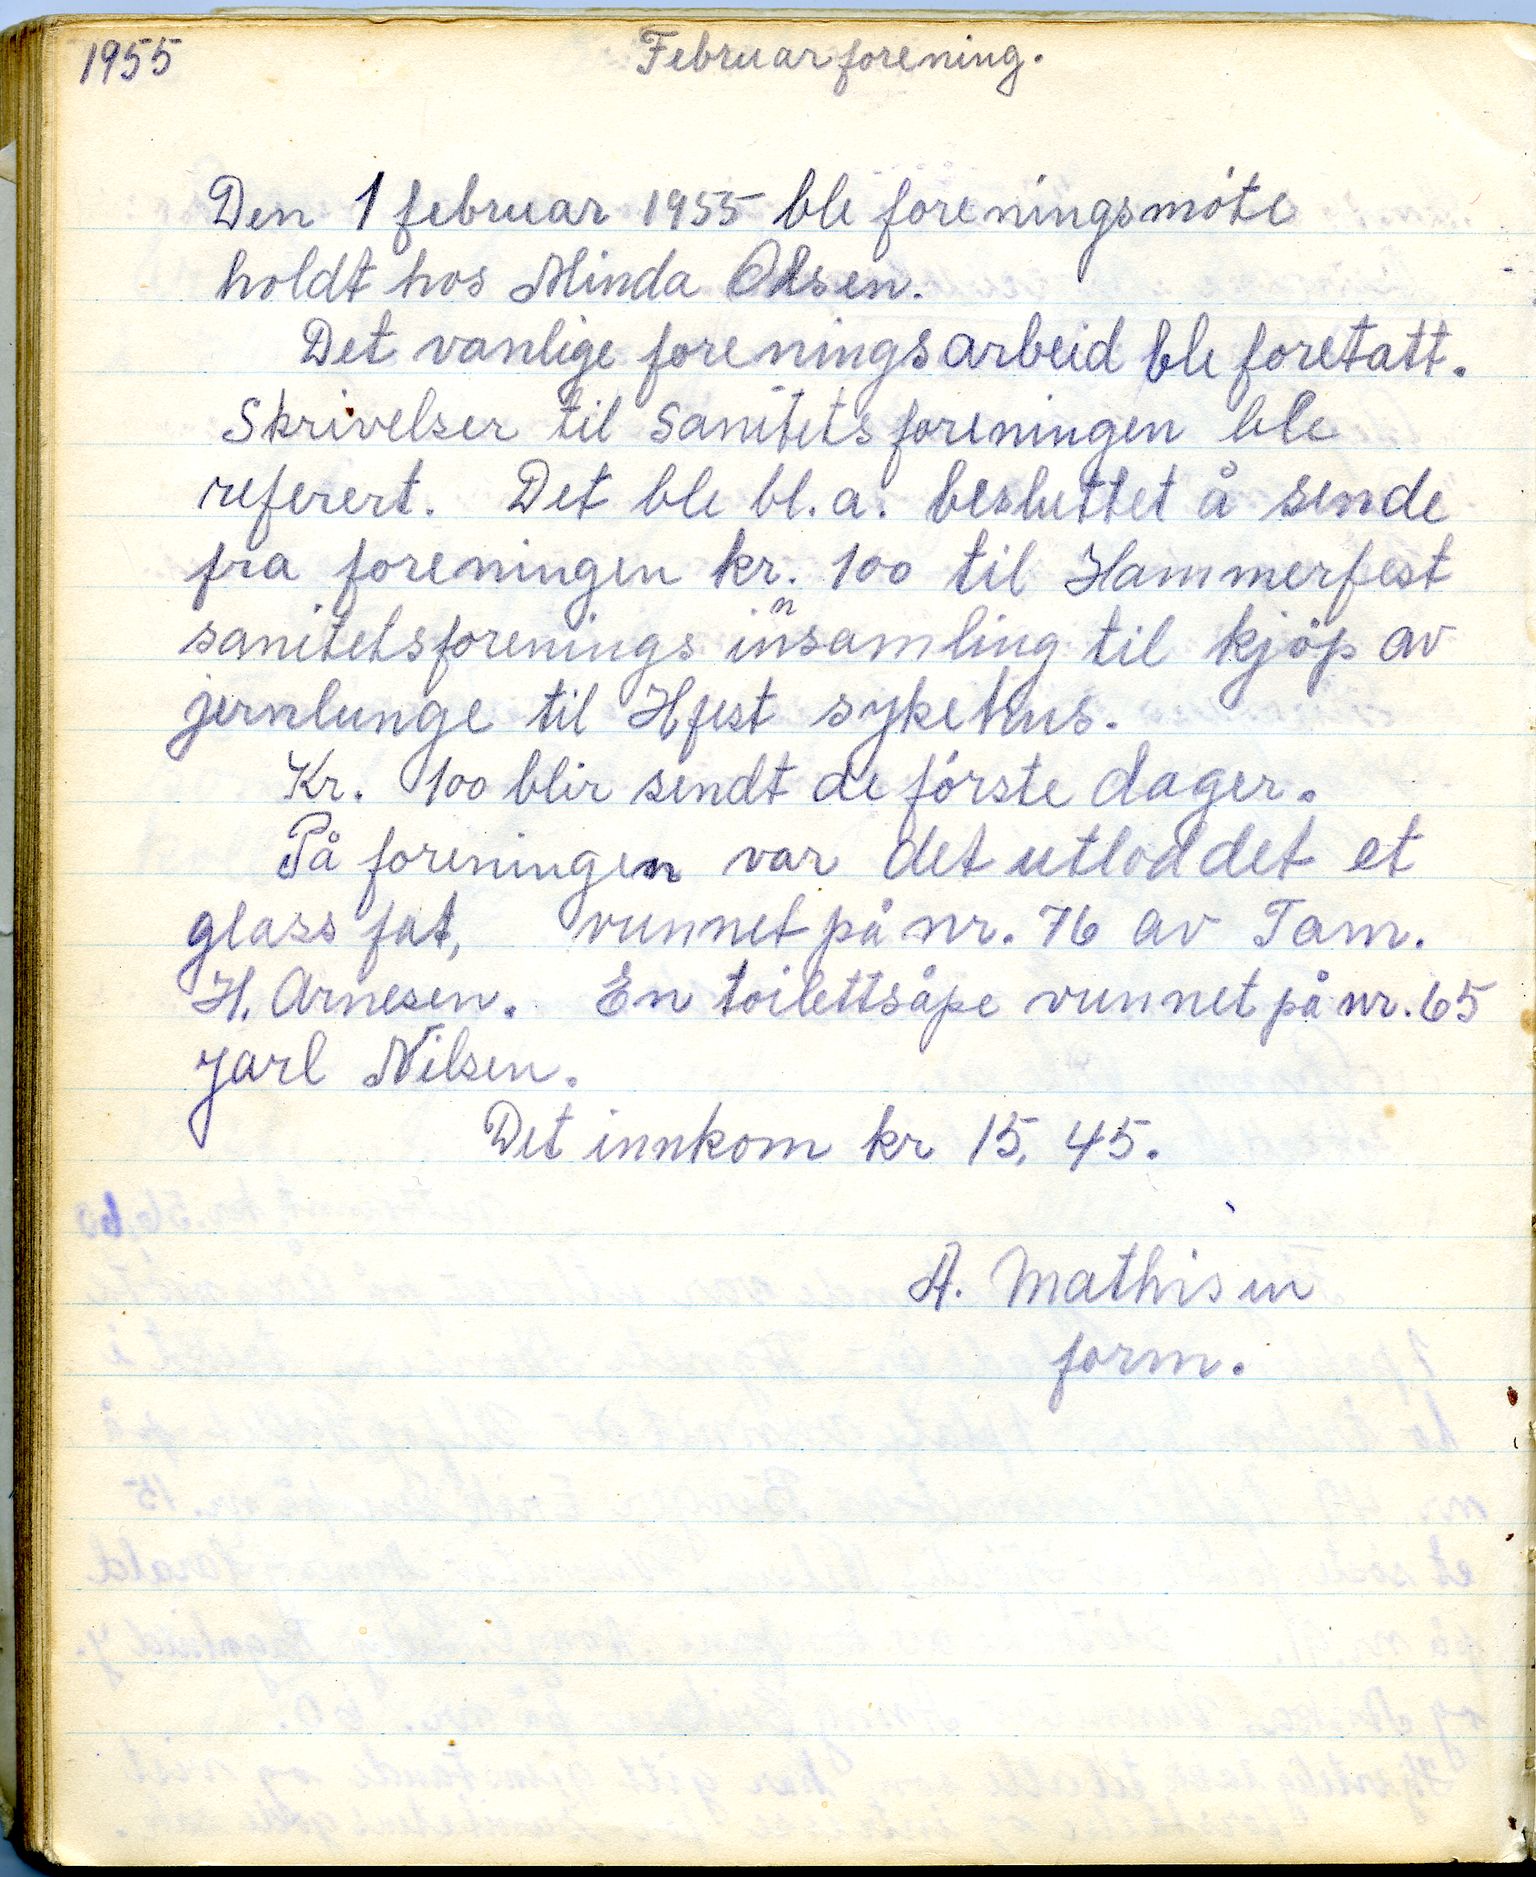 1955
Februarforening.
Den 1 februar 1955 ble foreningsmöte
holdt hos Minda Olsen.
Det vanlige foreningsarbeid ble foretatt.
Skrivelser til Sanitetsforeningen ble
referert. Det ble bl. a. besluttet å sende
fra foreningen kr. 100 til Hammerfest
sanitetsforenings innsamling til kjöp av
jernlunge til Hfest sykehus.
Kr. 100 blir sendt de förste dager.
På foreningen var det utloddet et
glassfat, vunnet på nr. 76 av Tam.
H. Arnesen. En toilettsåpe vunnet på nr. 65
Jarl Nilsen.
Det innkom kr 15,45.
A. Mathisen
form.